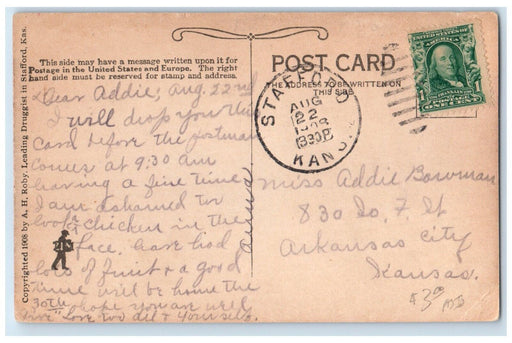 Copyrighted 1908 by A. H. Roby, Leading Druggist in Stafford, Kas.
This side may have a message written upon it for
Postage in the United States and Europe. The right
hand side must be reserved for stamp and address.
Dear Addie; Aug. 22nd
I will drop you this
card before the postman
comes at 9:30 am
having a fine time
I am ashamed to
look a chicken in the
face, have had
lots of fruit & a good
time will be home the
30th hope you are well
Love to all & yourself.
Anna
POST CARD
THE ADDRESS TO BE WRITTEN ON
THIS SIDE
STAFFORD
AUG
22
1908
KANS.
1
Miss Addie Bowman
830 So. F. St
Arkansas City
Kansas.
$3.00